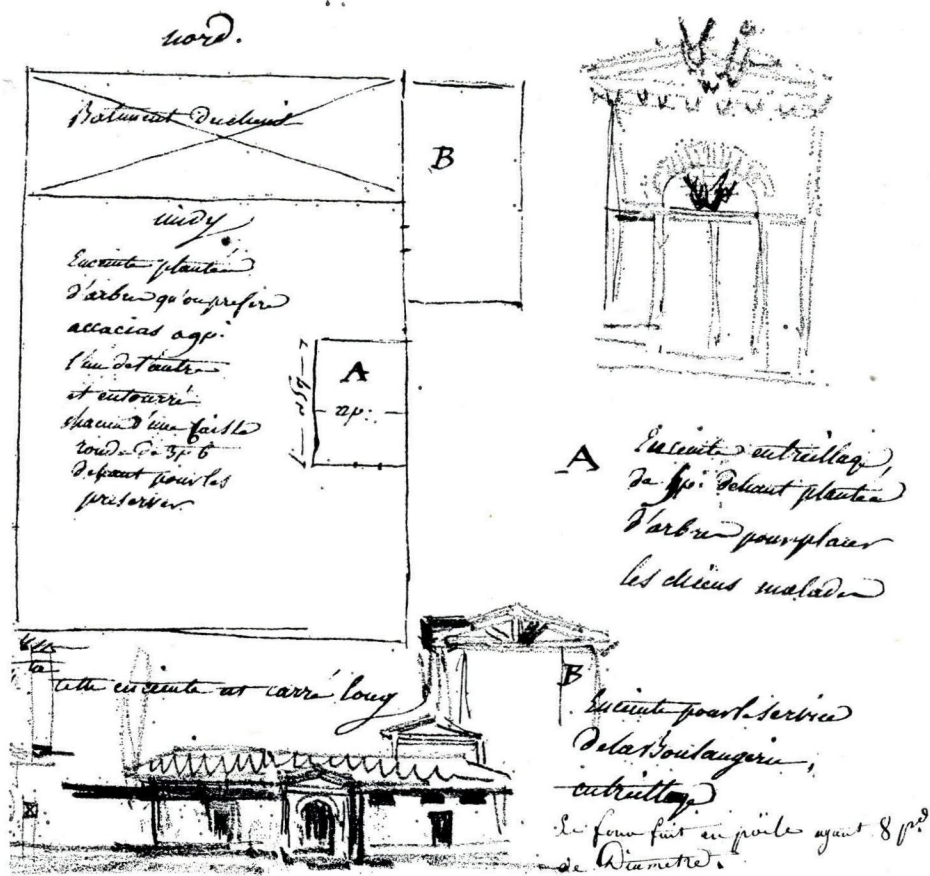 nord.
Batiment Duchenil
B
midy
Enceinte plantée
d'arbres qu'on prefere
accacias a 9 pi.
l'un de l'autre
et entourré
chacun d'une caisse
ronde de 3 pi 6
de haut pour les
preserver
A
22 pi.
A
Enceinte entreillage,
de pi. de haut plantée
d'arbres pour placer
les chiens malades
cette enceinte est carré long
B
Enceinte pour le service
de la Boulangerie,
entreillage
Le four fait en poile ayant 8 pds
de Diametre.